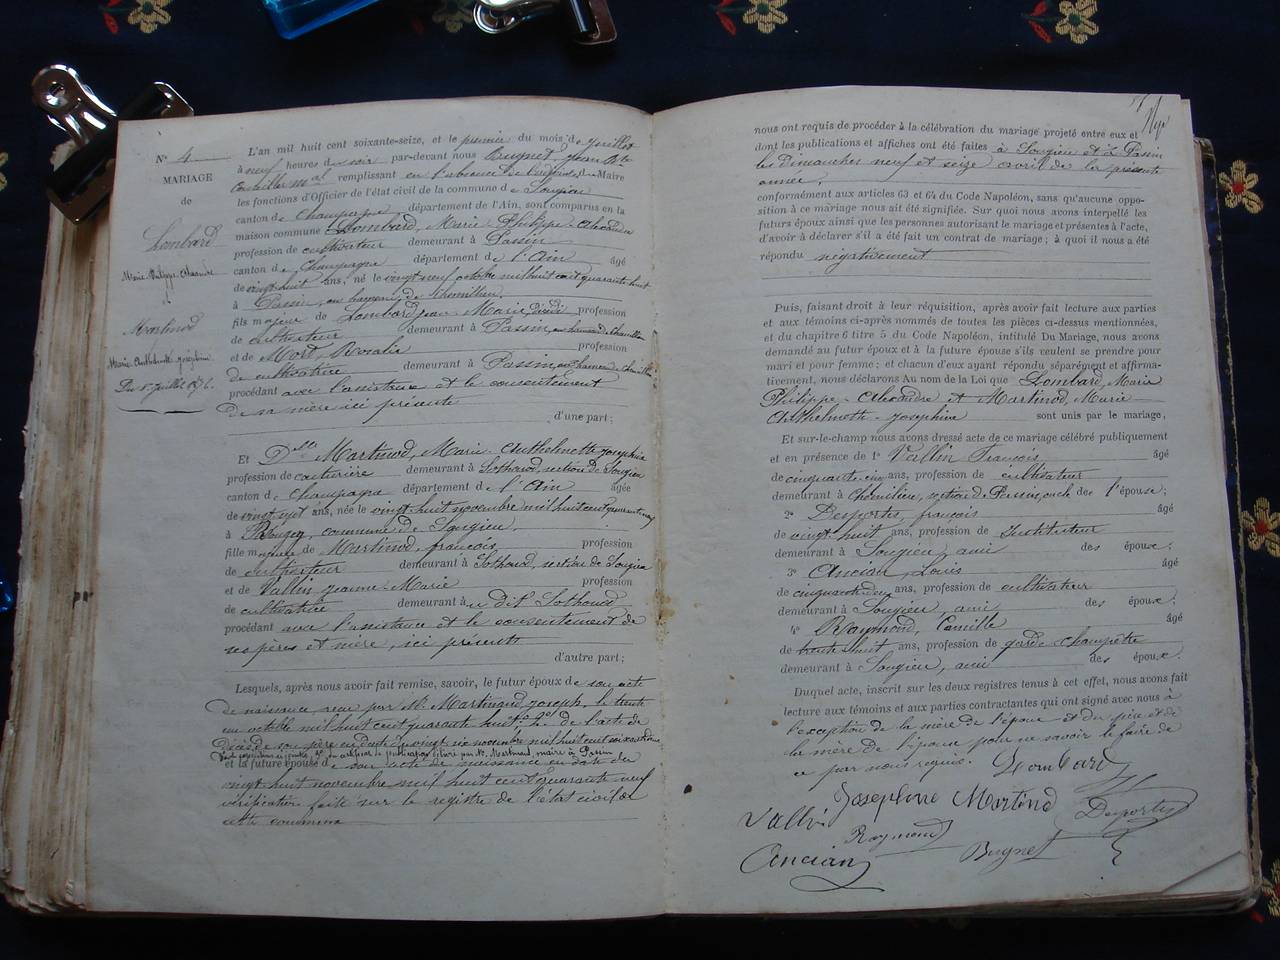 N° 4
MARIAGE
de
Lombard
Marie Philippe Alexandre
et
Martinod
Marie Anthelmette Joséphine
Du 1er Juillet 1876.
L'an mil huit cent soixante-seize, et le premier du mois de Juillet
à neuf heures du soir par-devant nous Bugnet, Jean Bte
Conseiller mal remplissant en l'absence de du Maire
les fonctions d'Officier de l'état civil de la commune de Songieu
canton de Champagne département de l'Ain, sont comparus en la
maison commune Lombard, Marie Philippe-Alexandre
profession de cultivateur demeurant à Passin
canton de Champagne département de l'Ain âgé
de vingt-huit ans, né le vingt neuf octobre mil huit cent quarante huit
à Passin, au hameau de Chemillieu,
fils majeur de Lombard, Jean-Marie, décédé profession
de cultivateur demeurant à Passin, au hameau de Chemillieu
et de Mort, Rosalie profession
de cultivatrice demeurant à Passin, au hameau de Chemillieu
procédant avec l'assistance et le consentement
de sa mère ici présente
d'une part;
Et Delle Martinod, Marie-Anthelmette-Joséphine
profession de couturière demeurant à Sothonod, section de Songieu
canton de Champagne département de l'Ain âgée
de vingt sept ans, née le vingt-huit novembre mil huit cent quarante neuf
à commune de Songieu,
fille majeure de Martinod, françois, profession
de cultivateur demeurant à Sothonod, section de Songieu
et de Vallin Jeanne-Marie profession
de cultivatrice demeurant à u dit Sothonod
procédant avec l'assistance et le consentement de
ses pères et mère, ici présents
d'autre part;
Lesquels, après nous avoir fait remise, savoir, le futur époux de son acte
de naissance, reçu par M. Martinand, Joseph, le trente
un octobre mil huit cent quarante huit; 2° de l'acte de
Décès de son père en date du vingt six novembre mil huit cent soixante
maire à Passin
et la future épouse de son acte de naissance en date du
vingt huit novembre mil huit cent quarante neuf
vérification faite sur le registre de l'état civil de
cette commune
nous ont requis de procéder à la célébration du mariage projeté entre eux et
dont les publications et affiches ont été faites à Songieu et à Passin
les dimanches neuf et seize avril de la présente
année,
conformément aux articles 63 et 64 du Code Napoléon, sans qu'aucune oppo-
sition à ce mariage nous ait été signifiée. Sur quoi nous avons interpellé les
futurs époux ainsi que les personnes autorisant le mariage et présentes à l'acte,
d'avoir à déclarer s'il a été fait un contrat de mariage; à quoi il nous a été
répondu négativement
Puis, faisant droit à leur réquisition, après avoir fait lecture aux parties
et aux témoins ci-après nommés de toutes les pièces ci-dessus mentionnées,
et du chapitre 6 titre 5 du Code Napoléon, intitulé Du Mariage, nous avons
demandé au futur époux et à la future épouse s'ils veulent se prendre pour
mari et pour femme; et chacun d'eux ayant répondu séparément et affirma-
tivement, nous déclarons Au nom de la Loi que Lombard, Marie
Philippe-Alexandre et Martinod, Marie-
Anthelmette-Joséphine sont unis par le mariage,
Et sur-le-champ nous avons dressé acte de ce mariage célébré publiquement
et en présence de 1° Vallin François âgé
de cinquante cinq ans, profession de cultivateur
demeurant à Chemilieu, section de Passin, oncle de l'épouse;
2° Desportes, françois âgé
de vingt huit ans, profession de Instituteur
demeurant à Songieu, ami des époux.
3° Ancian, Louis âgé
de cinquante deux ans, profession de cultivateur
demeurant à Songieu, ami des époux
4° Raymond, Camille âgé
de trente huit ans, profession de garde champêtre
demeurant à Songieu, ami des époux.
Duquel acte, inscrit sur les deux registres tenus à cet effet, nous avons fait
lecture aux témoins et aux parties contractantes qui ont signé avec nous à
l'exception de la mère de l'époux et du père et de
la mère de l'épouse pour ne savoir le faire de
ce par nous requis. Lombard
Joséphine Martinod
Vallin Raymond Desportes
Ancian Bugnet